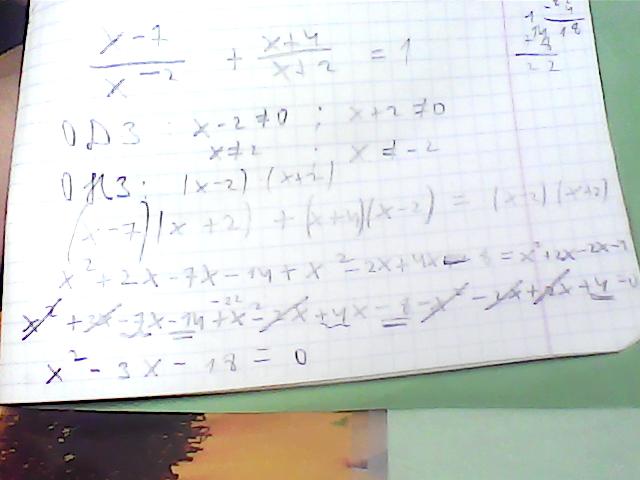 x-7/x-2 + x+4/x+2 = 1
ОДЗ: x-2≠0 ; x+2≠0
x≠2 ; x≠-2
ОНЗ: (x-2) (x+2)
(x-7)(x+2) + (x+4)(x-2) = (x-2)(x+2)
x²+2x-7x-14+x²-2x+4x-8=x²+2x-2x-4
x²+2x-7x-14+x²-2x+4x-8-x²-2x+2x+4=0
x²-3x-18=0